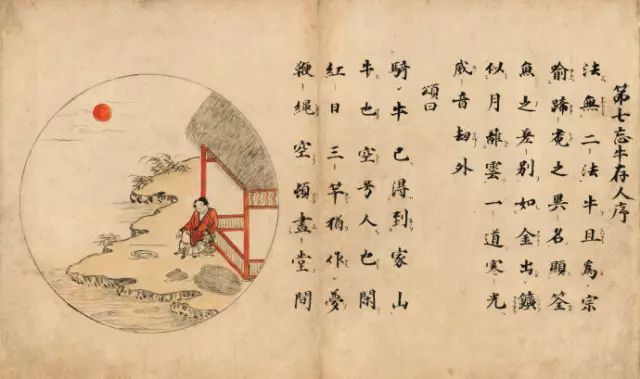 第七忘牛存人序
法無二法牛且爲宗
喻蹄菟之異名顯筌
魚之差別如金出鑛
似月離雲一道寒光
威音劫外
頌曰
騎牛已得到家山
牛也空兮人也閑
紅日三竿猶作夢
鞭縄空頓盡堂間